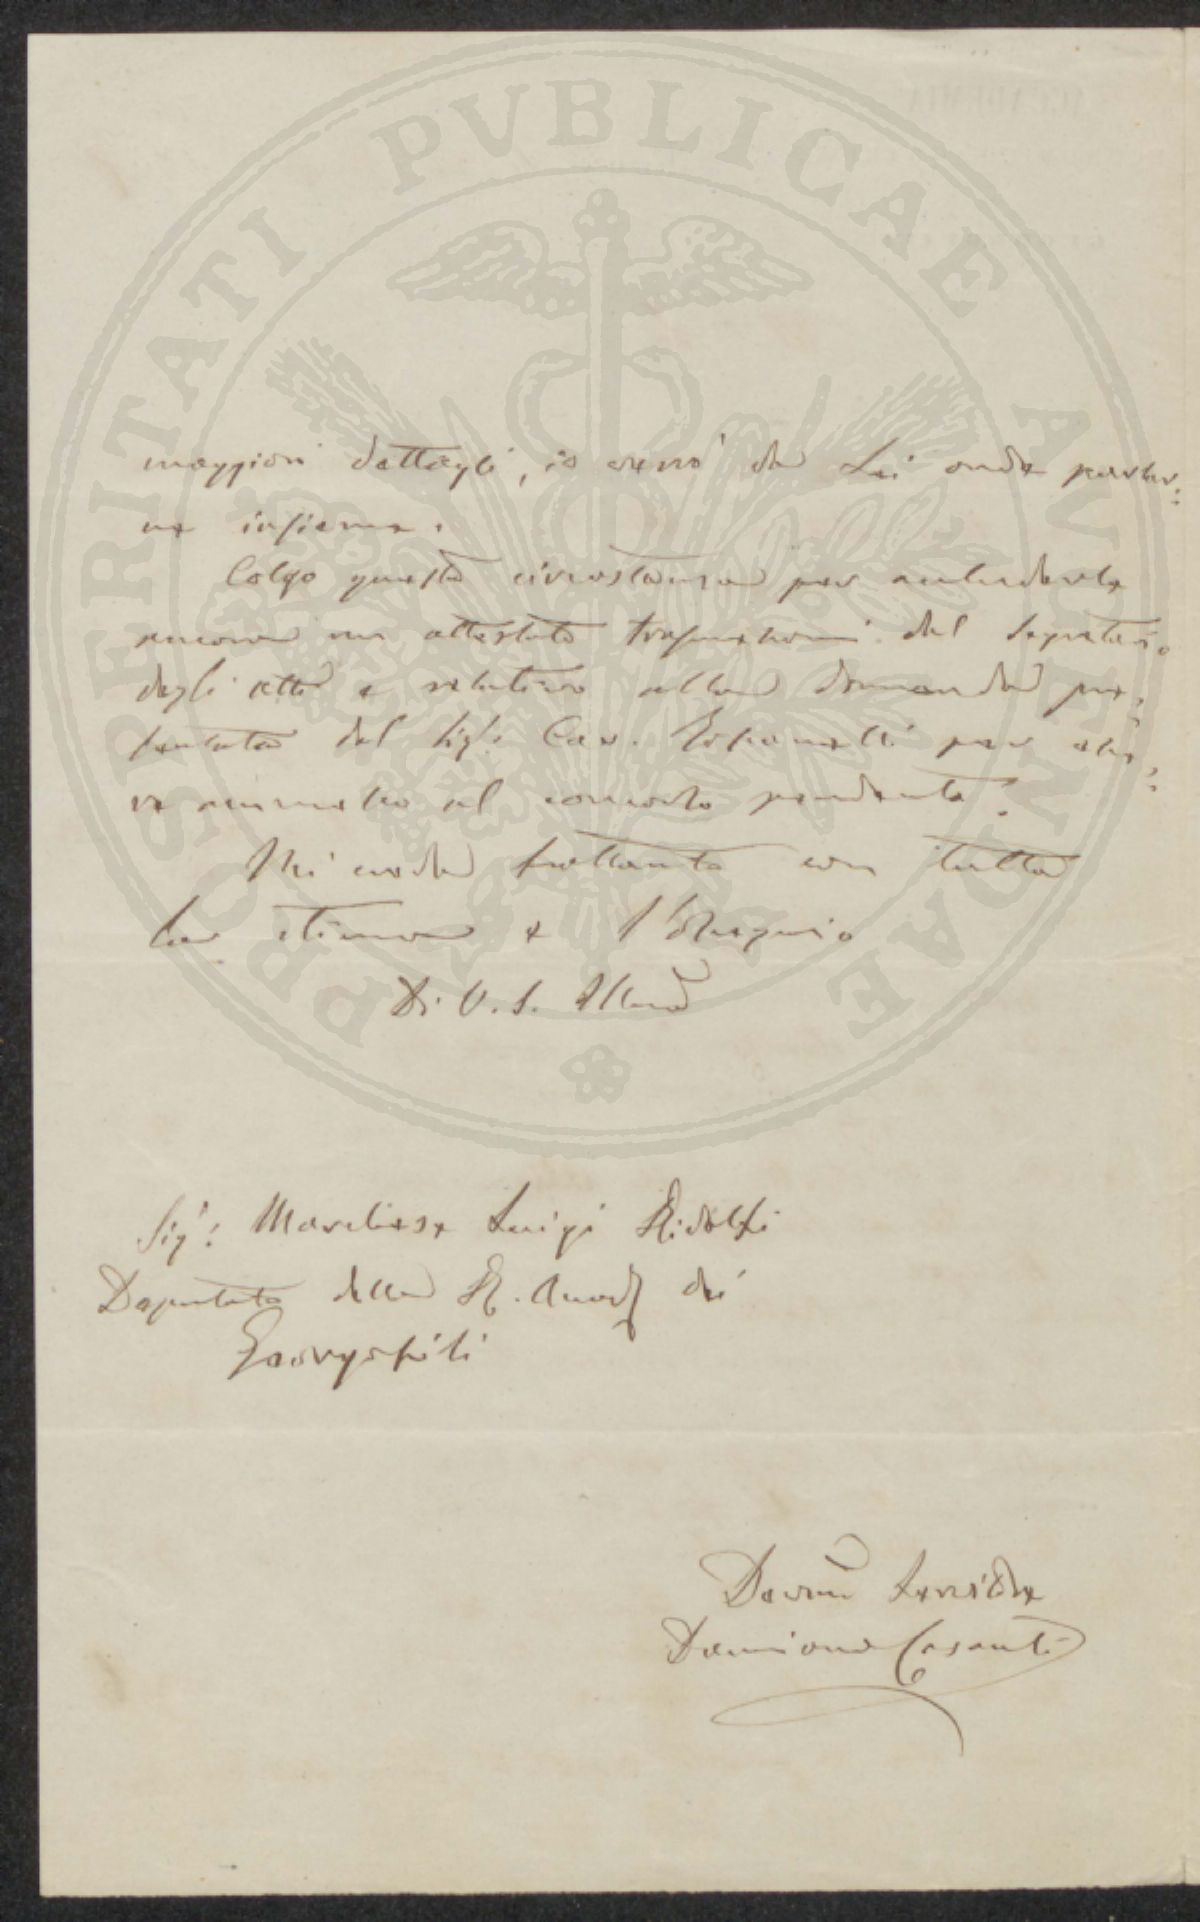 PROSPERITATI PUBLICAE AUGENDAE
maggiori dettagli, io verrò da Lei onde parlar=
ne insieme.
Colgo questa circostanza per accluderle
ancora un attestato trasmessomi dal Segretario
degli Atti e relativo alla domanda pre=
sentata dal Sigr. Cav. per esse=
re ammesso al concorso pendente.
Mi creda frattanto con tutta
la stima e l'Ossequio
Di V. S. Illma
Sigr: Marchese Luigi Ridolfi
Deputato della R. Accad dei
Georgofili
Devmo Servitore
Damiano Casanti